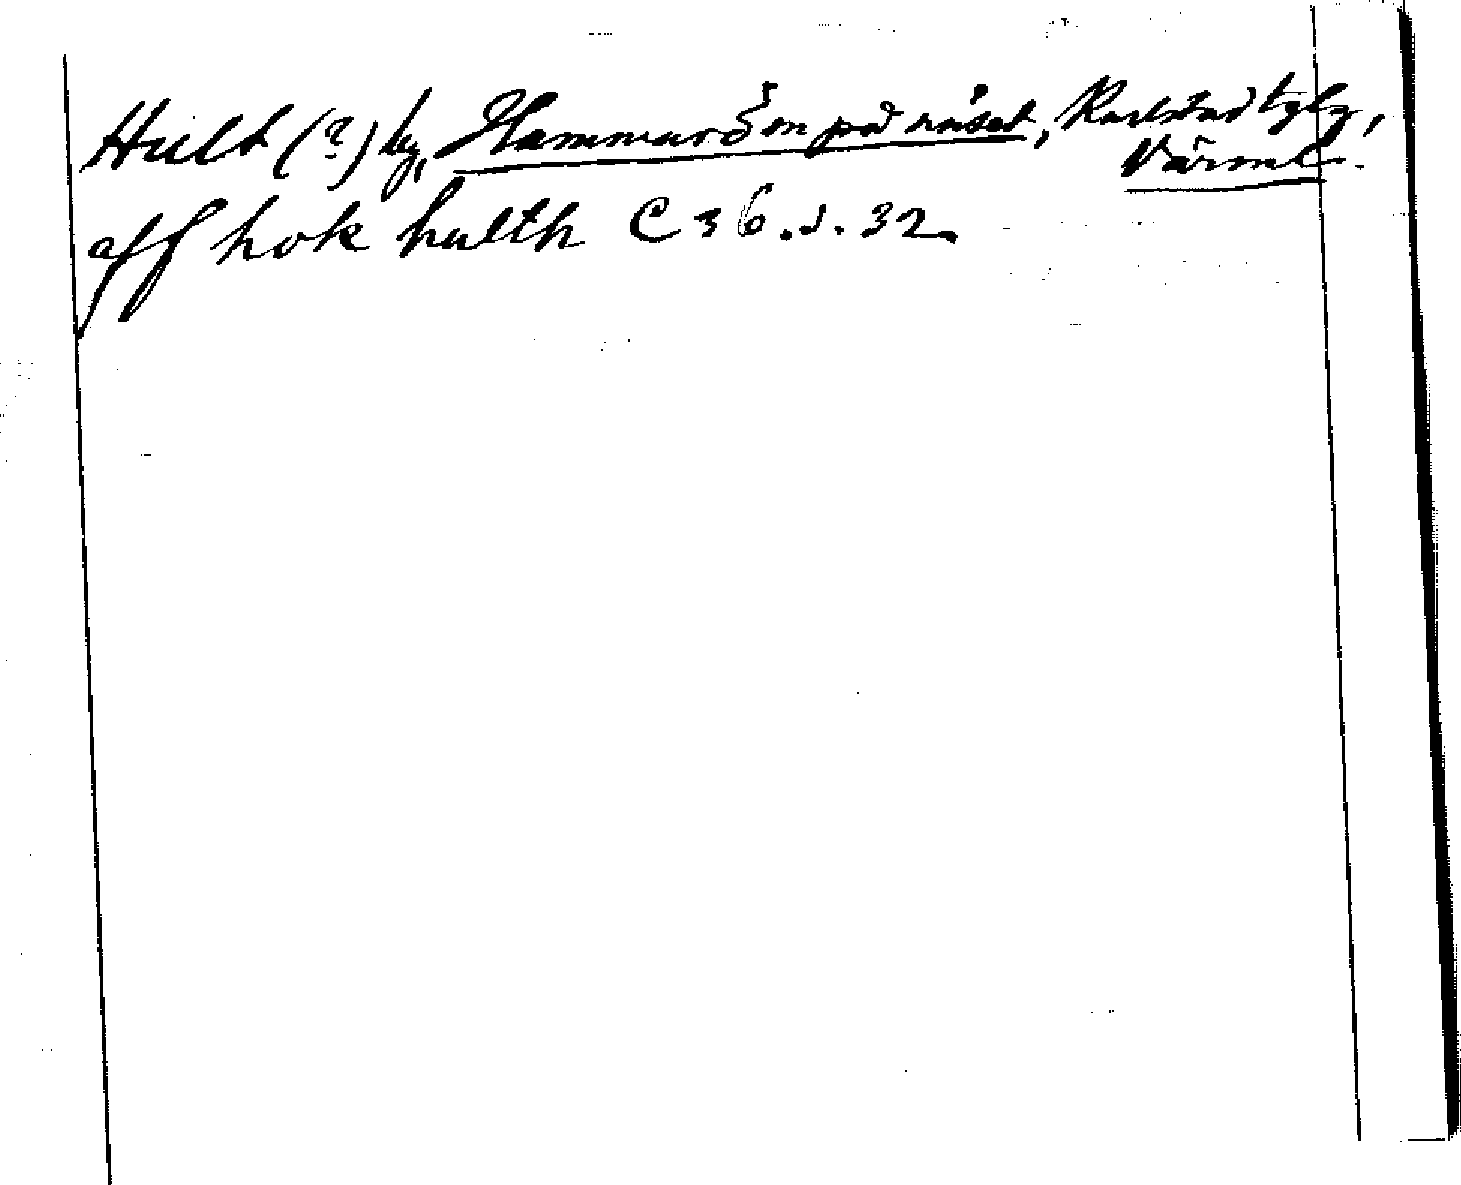 Hult (?) by, Hammarön på näset, Karlstad tglg,
Värml.
aff hok hulth C 36. s. 32.